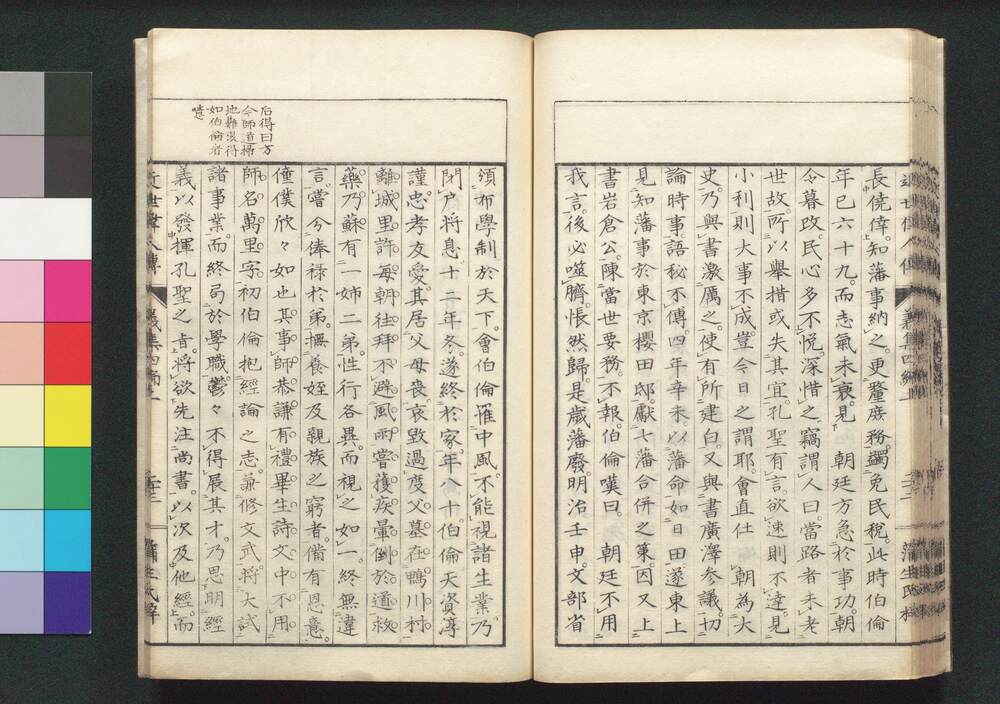 長僥倖。知藩事納之。更釐庶務。蠲免民稅。此時伯倫
年已六十九。而志氣未衰。見朝廷方急於事功。朝
令暮改。民心多不悅。深惜之。竊謂人曰。當路者未老
世故。所以舉措或失其宜。孔聖有言。欲速則不達。見
小利則大事不成。豈今日之謂耶。會直仕朝為大
史。乃與書激厲之。使有所建白。又與書廣澤參議。切
論時事。語秘不傳。四年辛未。以藩命如日田。遂東上
見知藩事於東京櫻田邸。獻七藩合併之策。因又上
書岩倉公。陳當世要務。不報。伯倫嘆曰。朝廷不用
我言。後必噬臍。悵然歸。是歲藩廢。明治壬申。文部省
頒布學制於天下。會伯倫罹中風。不能視諸生業。乃
閉戶將息。十二年冬。遂終於家。年八十。伯倫天資淳
謹。忠孝友愛。其居父母喪。哀毀過度。父墓在鴨川村。
離城里許。每朝往拜。不避風雨。嘗獲疾暈倒於道。救
藥乃蘇。有一姉二弟。性行各異。而視之如一。終無違
言。嘗分俸祿於弟。撫養姪及親族之窮者。備有恩意。
僮僕欣々如也。其事師恭謙有禮。畢生詩文中不用
師名萬里字。初伯倫抱經論之志。兼修文武。將大試
諸事業。而終局於學職。鬱々不得展其才。乃思明經
義以發揮孔聖之旨。將欲先注尚書。以次及他經。而
后得曰方
今師道掃
地難哉得
如伯倫者
噫
近世偉人傳
義集四編
蒲生氏梓